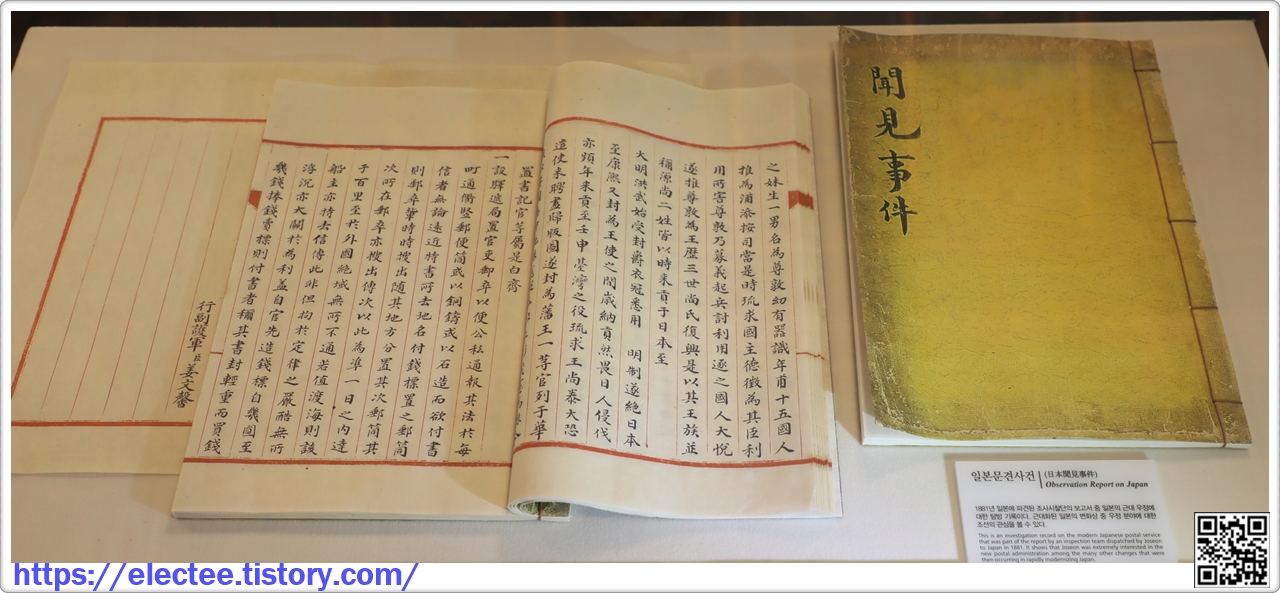 之妹生一男名為尊敦幼有器識年甫十五國人
推為浦添按司當是時琉求國主德微為其臣利
用所害尊敦乃募義起兵討利用逐之國人大悅
遂推尊敦為王歷三世尚氏復興是以其王族並
稱源尚二姓皆以時来貢于日本至
大明洪武始受封爵衣冠悉用 明制遂絶日本
至康熙又封為王使之間歲納貢然畏日人侵伐
亦頻年来貢至壬申臺灣之役琉求王尚泰大恐
遣使来聘盡歸版圖遂封為藩王一等官列于華
置書記官等屬是白齊
一設驛逓局置官吏卒以便公私通報其法於每
町通衢竪郵便筒或以銅鑄或以石造而欲付書
信者無論遠近持書所去地名付錢標置之郵筒
則郵卒時時搜出隨其地方分置其次郵筒其
次所在郵卒亦搜出傳次以此為準一日之內達
于百里至於外國絶域無所不通若値渡海則該
船主亦持去信傳此非但拘於定律之嚴酷無所
浮沉亦大關於為利盖自官先造錢標自幾圜至
幾錢捧錢賣標則付書者稱其書封輕重而買錢
行副護軍臣姜文馨
聞見事件
일본문견사건 (日本聞見事件)
Observation Report on Japan
1881년 일본에 파견된 조사시찰단의 보고서 중 일본의 근대 우정에
대한 탐방 기록이다. 근대화된 일본의 변화상 중 우정 분야에 대한
조선의 관심을 볼 수 있다.
This is an investigation record on the modern Japanese postal service
that was part of the report by an inspection team dispatched by Joseon
to Japan in 1881. It shows that Joseon was extremely interested in the
new postal administration among the many other changes that were
then occurring in rapidly modernizing Japan.
https://electee.tistory.com/